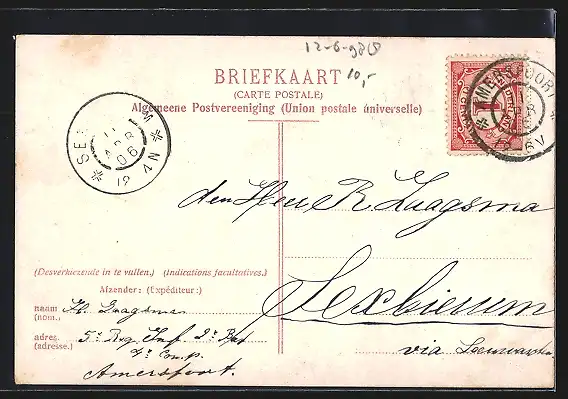 12-6-98
10,-
BRIEFKAART
(CARTE POSTALE)
Algemeene Postvereeniging (Union postale universelle)
AMERSFOORT
1
SE
06
12 4N
6V
den Heer R Zaagsma
Sexbierum
via Leeuwarden
(Desverkiezende in te vullen.) (Indications facultatives.)
Afzender: (Expéditeur:)
naam (nom.,
Zaagsma
adres. (adresse.)
5e Reg. Inf. 2e Bat
4e Comp.
Amersfoort.